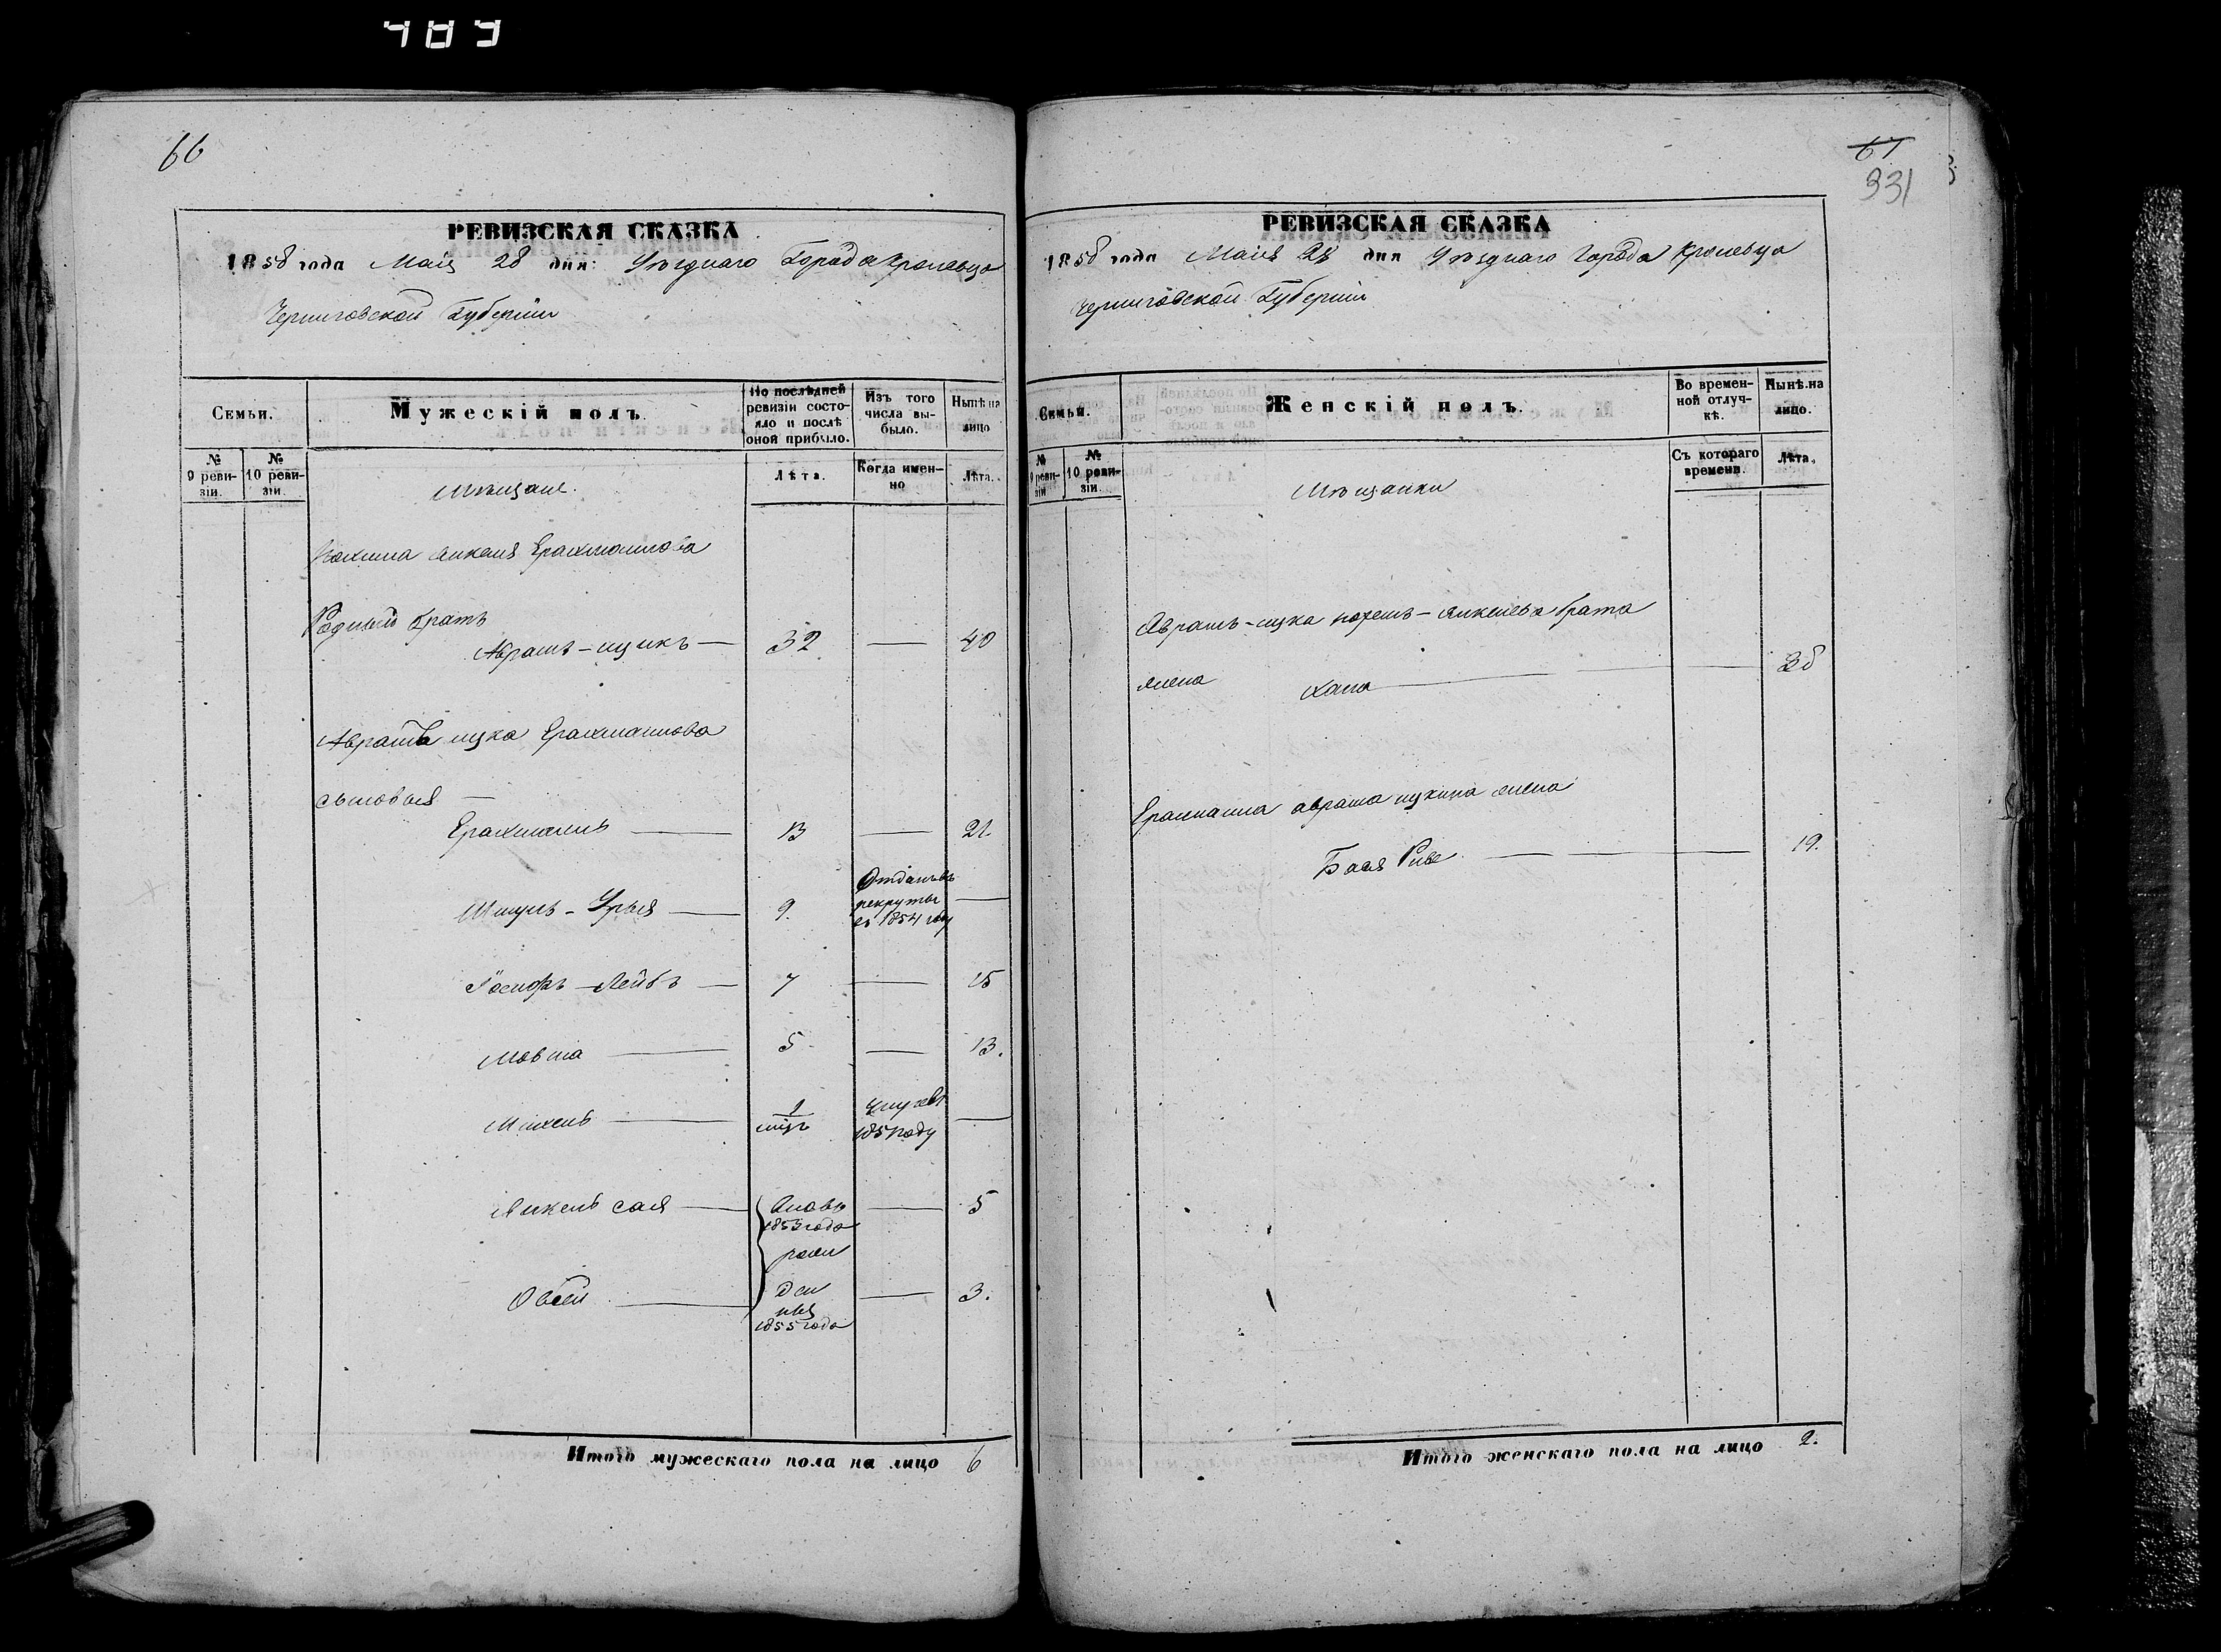 483
66
РЕВИЗСКАЯ СКАЗКА
1858 года Мая 28 дня Уѣзднаго Города Кролевца
Черниговской Губерніи
Семьи.
Мужескій полъ.
По послѣдней ревизіи состояло и послѣ оной прибыло.
Изъ того числа выбыло.
Нынѣ на лицо
№ 9 ревизіи.
№ 10 ревизіи.
Мѣщане.
Лѣта.
Когда именно
Лѣта.
Янкеля Ерахмаилова
Родный братъ
Абрамъ-ицикъ — 32 — 40
Абрама ицка Ерахмаилова
сыновья —
Ерахмаилъ — 13 — 21
Шмуль-Урья — 9. Отданъ въ рекруты въ 1854 году —
Іосифъ-Лейбъ — 7 — 15
Мовша — 5 — 13.
Михель — 1 умре въ 1851 году —
Янкель сая — вновь 1853 года — 5
рожденныя
Овсей — 1855 года — 3.
Итого мужескаго пола на лицо 6
67
331
РЕВИЗСКАЯ СКАЗКА
1858 года Мая 28 дня Уѣзднаго Города Кролевца
Черниговской Губерніи
Семьи.
Женскій полъ.
Во временной отлучкѣ.
Нынѣ на лицо.
№ 9 ревизіи
№ 10 ревизіи.
Мѣщанки
Съ котораго времени.
Лѣта.
Абрамъ-ицка нохемъ-янкелева брата
жена Хана — 38
Ерахмаила абрама ицкина жена
Бася Рива — 19.
Итого женскаго пола на лицо 2.